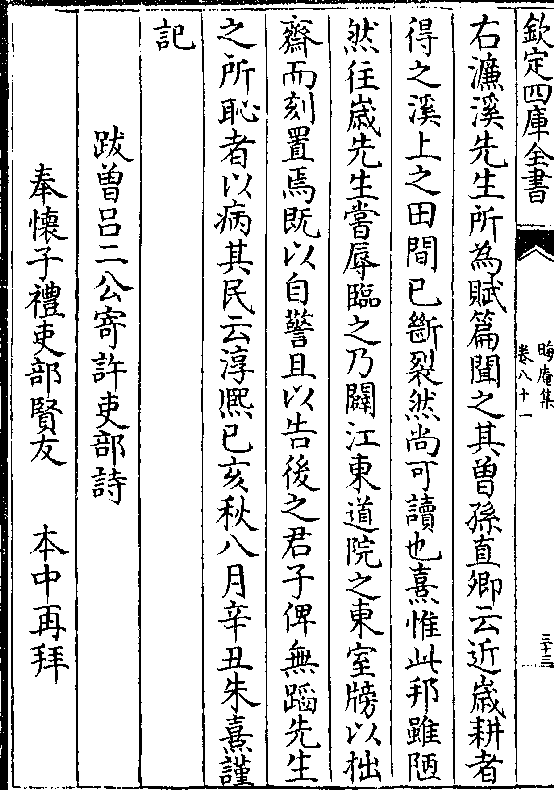 欽定四庫全書
晦庵集
卷八十一
三十三
右濓溪先生所為賦篇聞之其曽孫直卿云近嵗耕者
得之溪上之田間已斷裂然尚可讀也熹惟此邦雖陋
然往嵗先生嘗辱臨之乃闢江東道院之東室牓以拙
齋而刻置焉既以自警且以告後之君子俾無蹈先生
之所恥者以病其民云淳熈已亥秋八月辛丑朱熹謹
記
跋曽吕二公寄許吏部詩
奉懐子禮吏部賢友 本中再拜